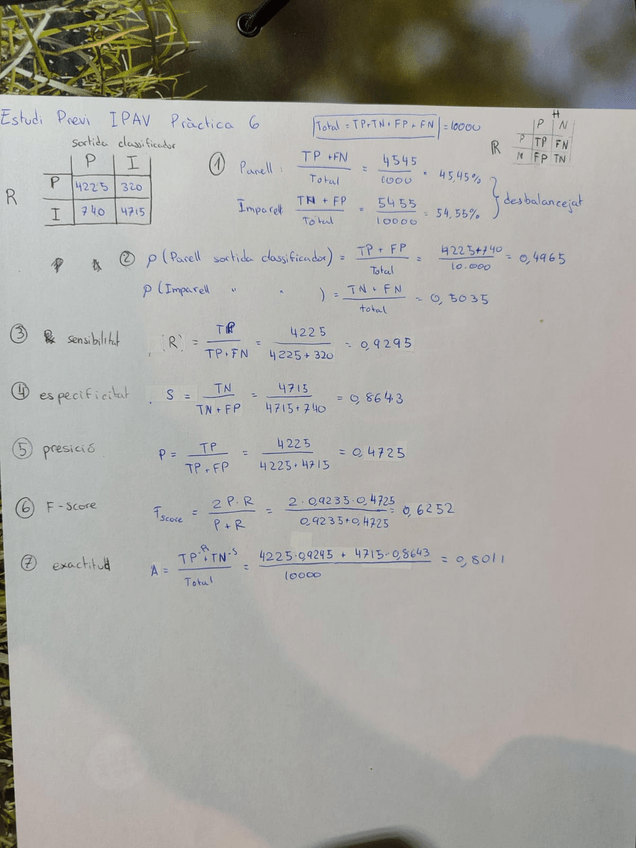 Estudi Previ IPAV Pràctica 6
Total = TP+TN+FP+FN = 10000
H
P N
R P TP FN
N FP TN
sortida classificador
P I
R P 4225 320
I 740 4715
① Parell: TP+FN / Total = 4545 / 1000 = 45,45%
Imparell TN + FP / Total = 5455 / 10000 = 54,55%
desbalancejat
② p (Parell sortida classificador) = TP + FP / Total = 4225+740 / 10.000 = 0,4965
p (Imparell " " ) = TN + FN / total = 0,5035
③ sensibilitat R = TP / TP+FN = 4225 / 4225+320 = 0,9295
④ especificitat S = TN / TN+FP = 4715 / 4715+740 = 0,8643
⑤ presició P = TP / TP+FP = 4225 / 4225+4715 = 0,4725
⑥ F-score Fscore = 2P·R / P+R = 2·0,9235·0,4725 / 0,9235+0,4725 = 0,6252
⑦ exactitud A = TP·R+TN·S / Total = 4225·0,9245 + 4715·0,8643 / 10000 = 0,8011